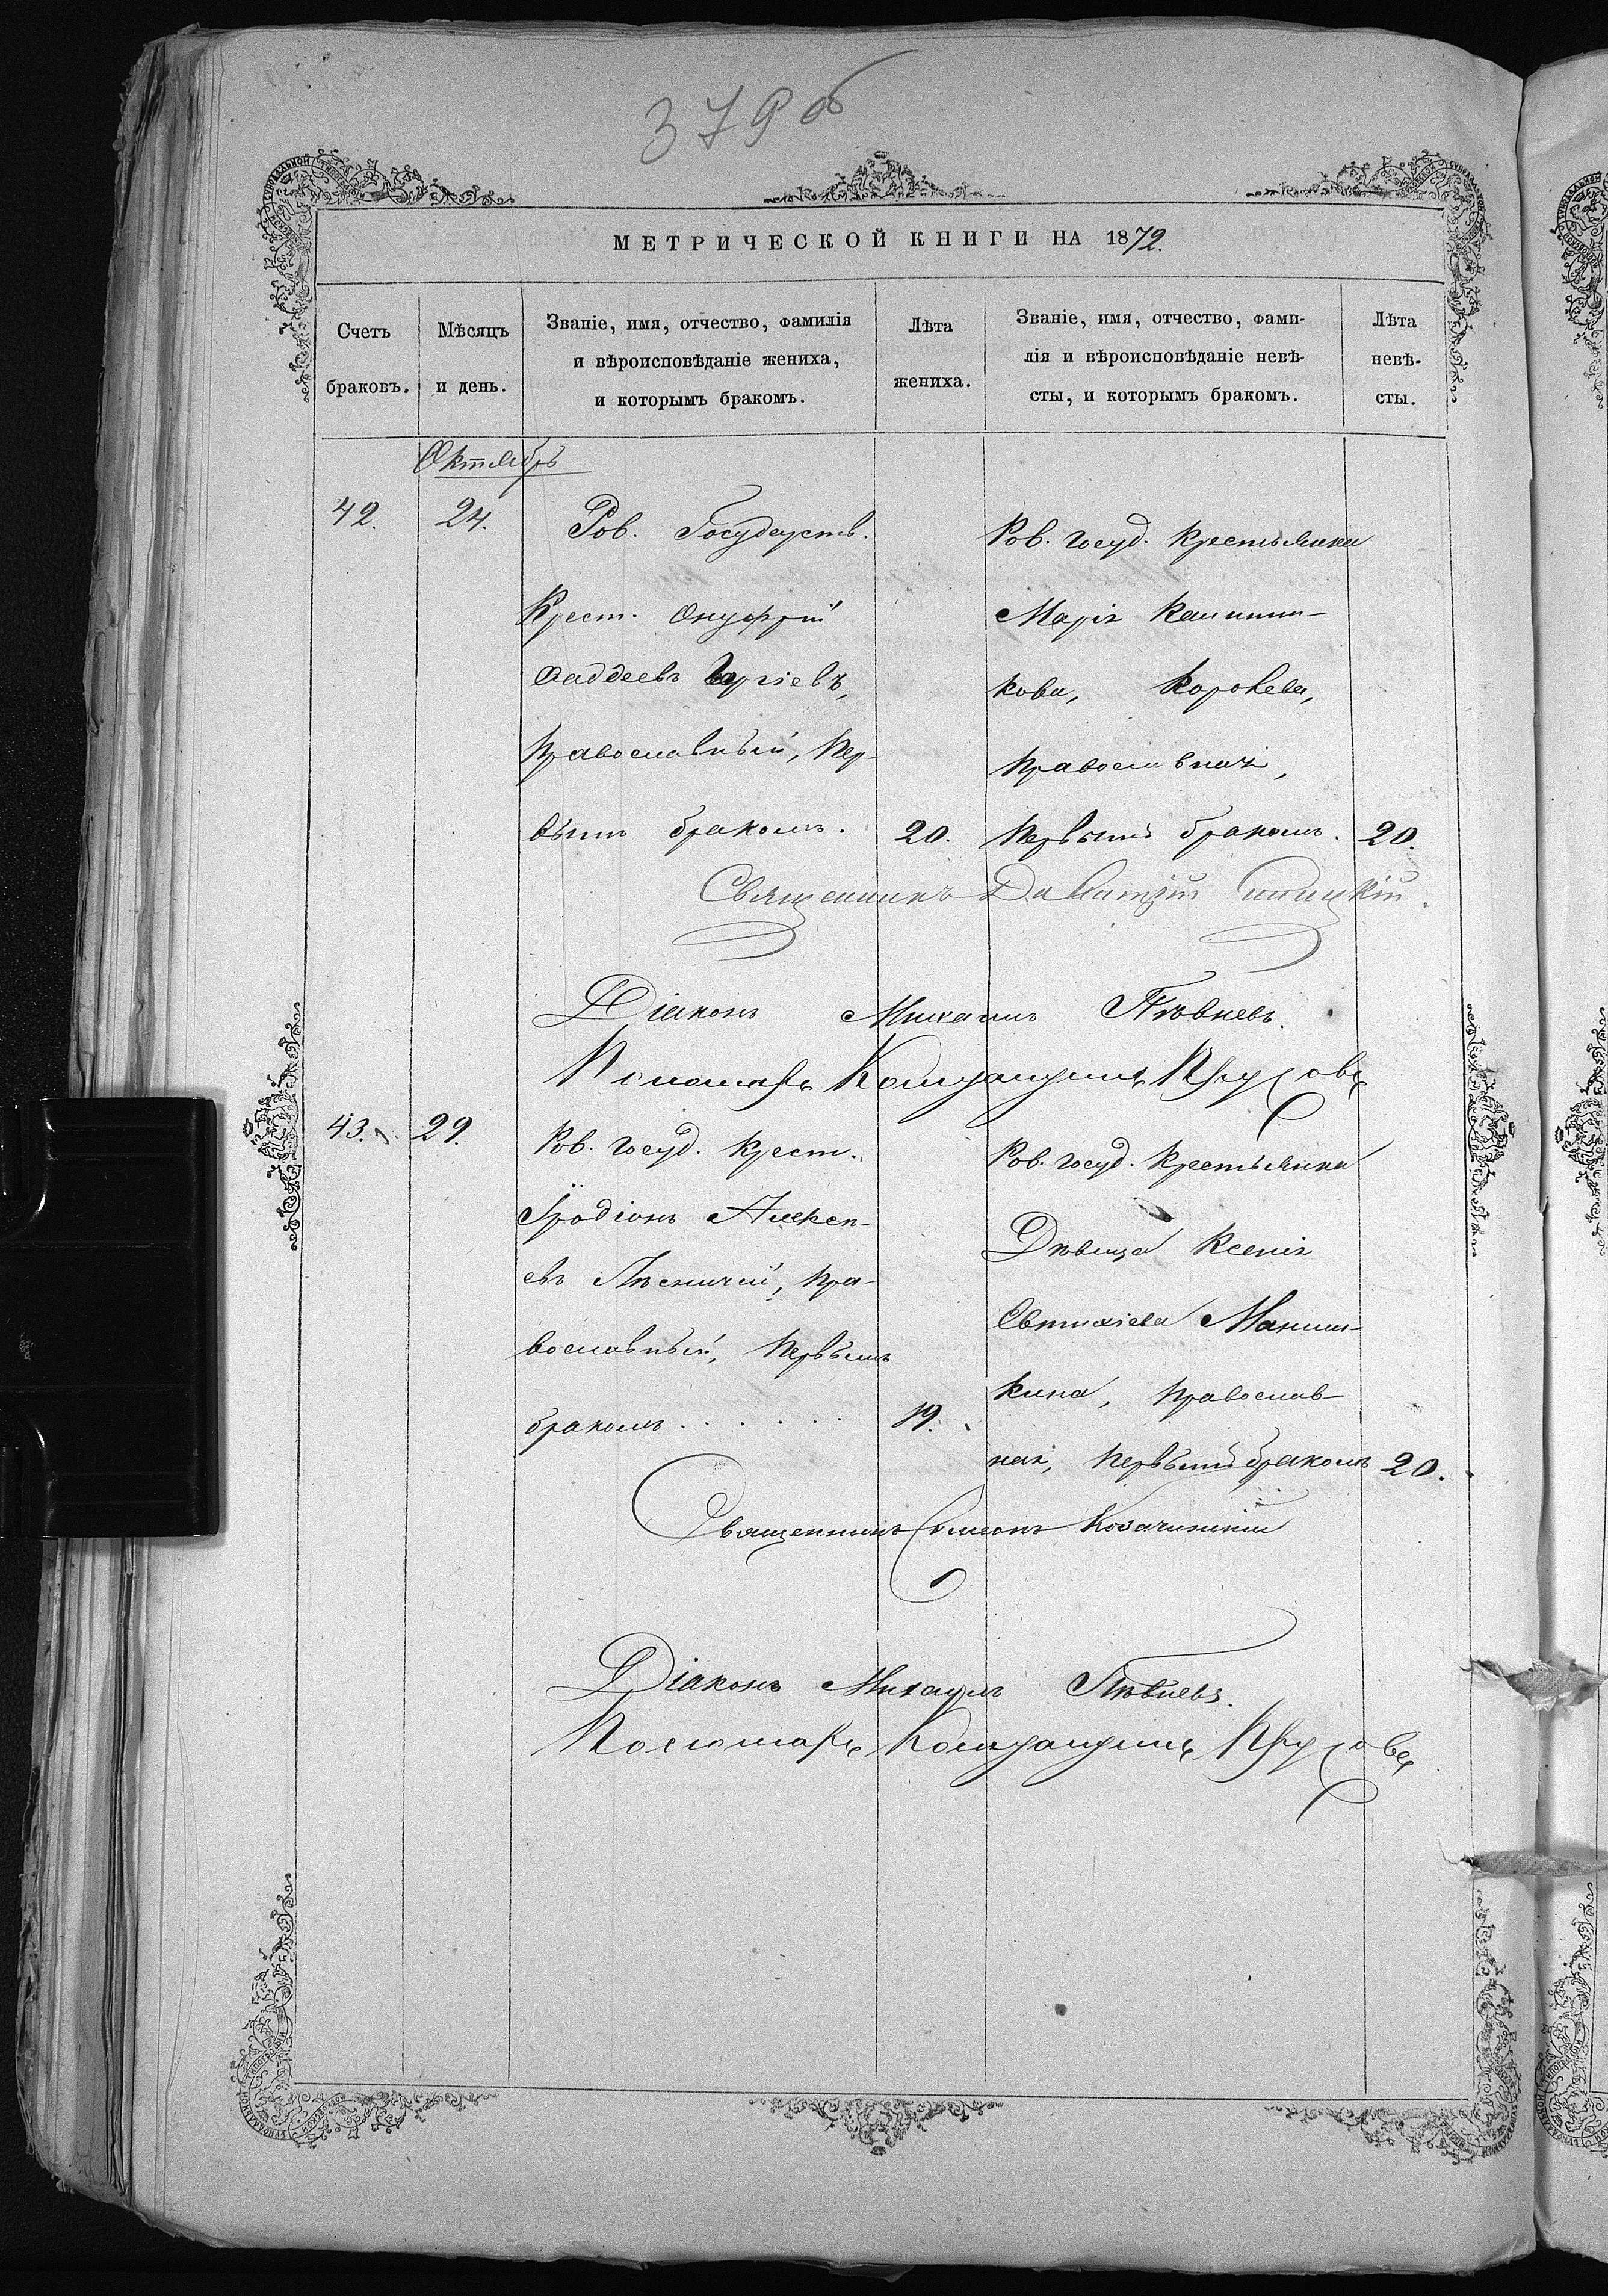 379 об
МЕТРИЧЕСКОЙ КНИГИ НА 1872.
Счетъ браковъ.
Мѣсяцъ и день.
Званіе, имя, отчество, фамилія
и вѣроисповѣданіе жениха,
и которымъ бракомъ.
Лѣта жениха.
Званіе, имя, отчество, фами-
лія и вѣроисповѣданіе невѣ-
сты, и которымъ бракомъ.
Лѣта невѣ-
сты.
Октябрь
42.
24.
Ров. Государств.
Крест. Онуфрій
Фаддеевъ
Православный, Пер-
вымъ бракомъ.
20.
Ров. госуд. Крестьянка
Марія Калинни-
кова, Королева,
Православная,
Первымъ бракомъ.
20.
Священникъ
Діаконъ Михаилъ Пѣвневъ.
Пономарь
43.
29.
Ров. госуд. Крест.
Иродіонъ Алексѣ-
евъ Пѣсничій, Пра-
вославный, Первымъ
бракомъ . . . . . .
19.
Ров. госуд. Крестьянка
Дѣвица Ксенія
Евтихіева Манш-
кина, Православ-
ная, Первымъ бракомъ
20.
Священникъ Симеонъ Козачинскій
Діаконъ Михаилъ Пѣвневъ.
Пономарь